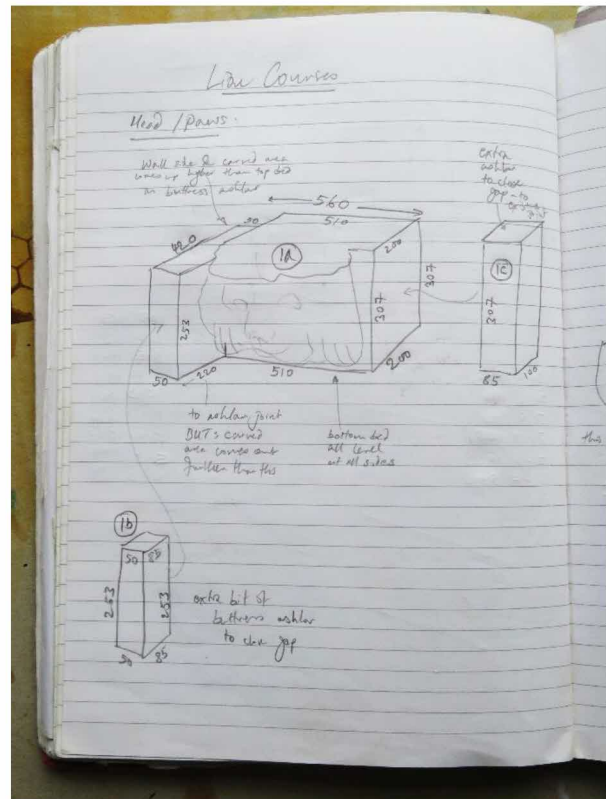 Lion Courses
Head / Paws.
Wall side & carved area
comes up higher than top bed
on buttress ashlar
extra
ashlar
to close
gap to
joint
560
510
90
420
1a
200
1c
307
307
307
253
50
220
510
200
85
100
to ashlar joint
BUT: carved
area comes out
further than this
bottom bed
all level
at all sides
this
1b
50
85
253
253
50
85
extra bit of
buttress ashlar
to close gap